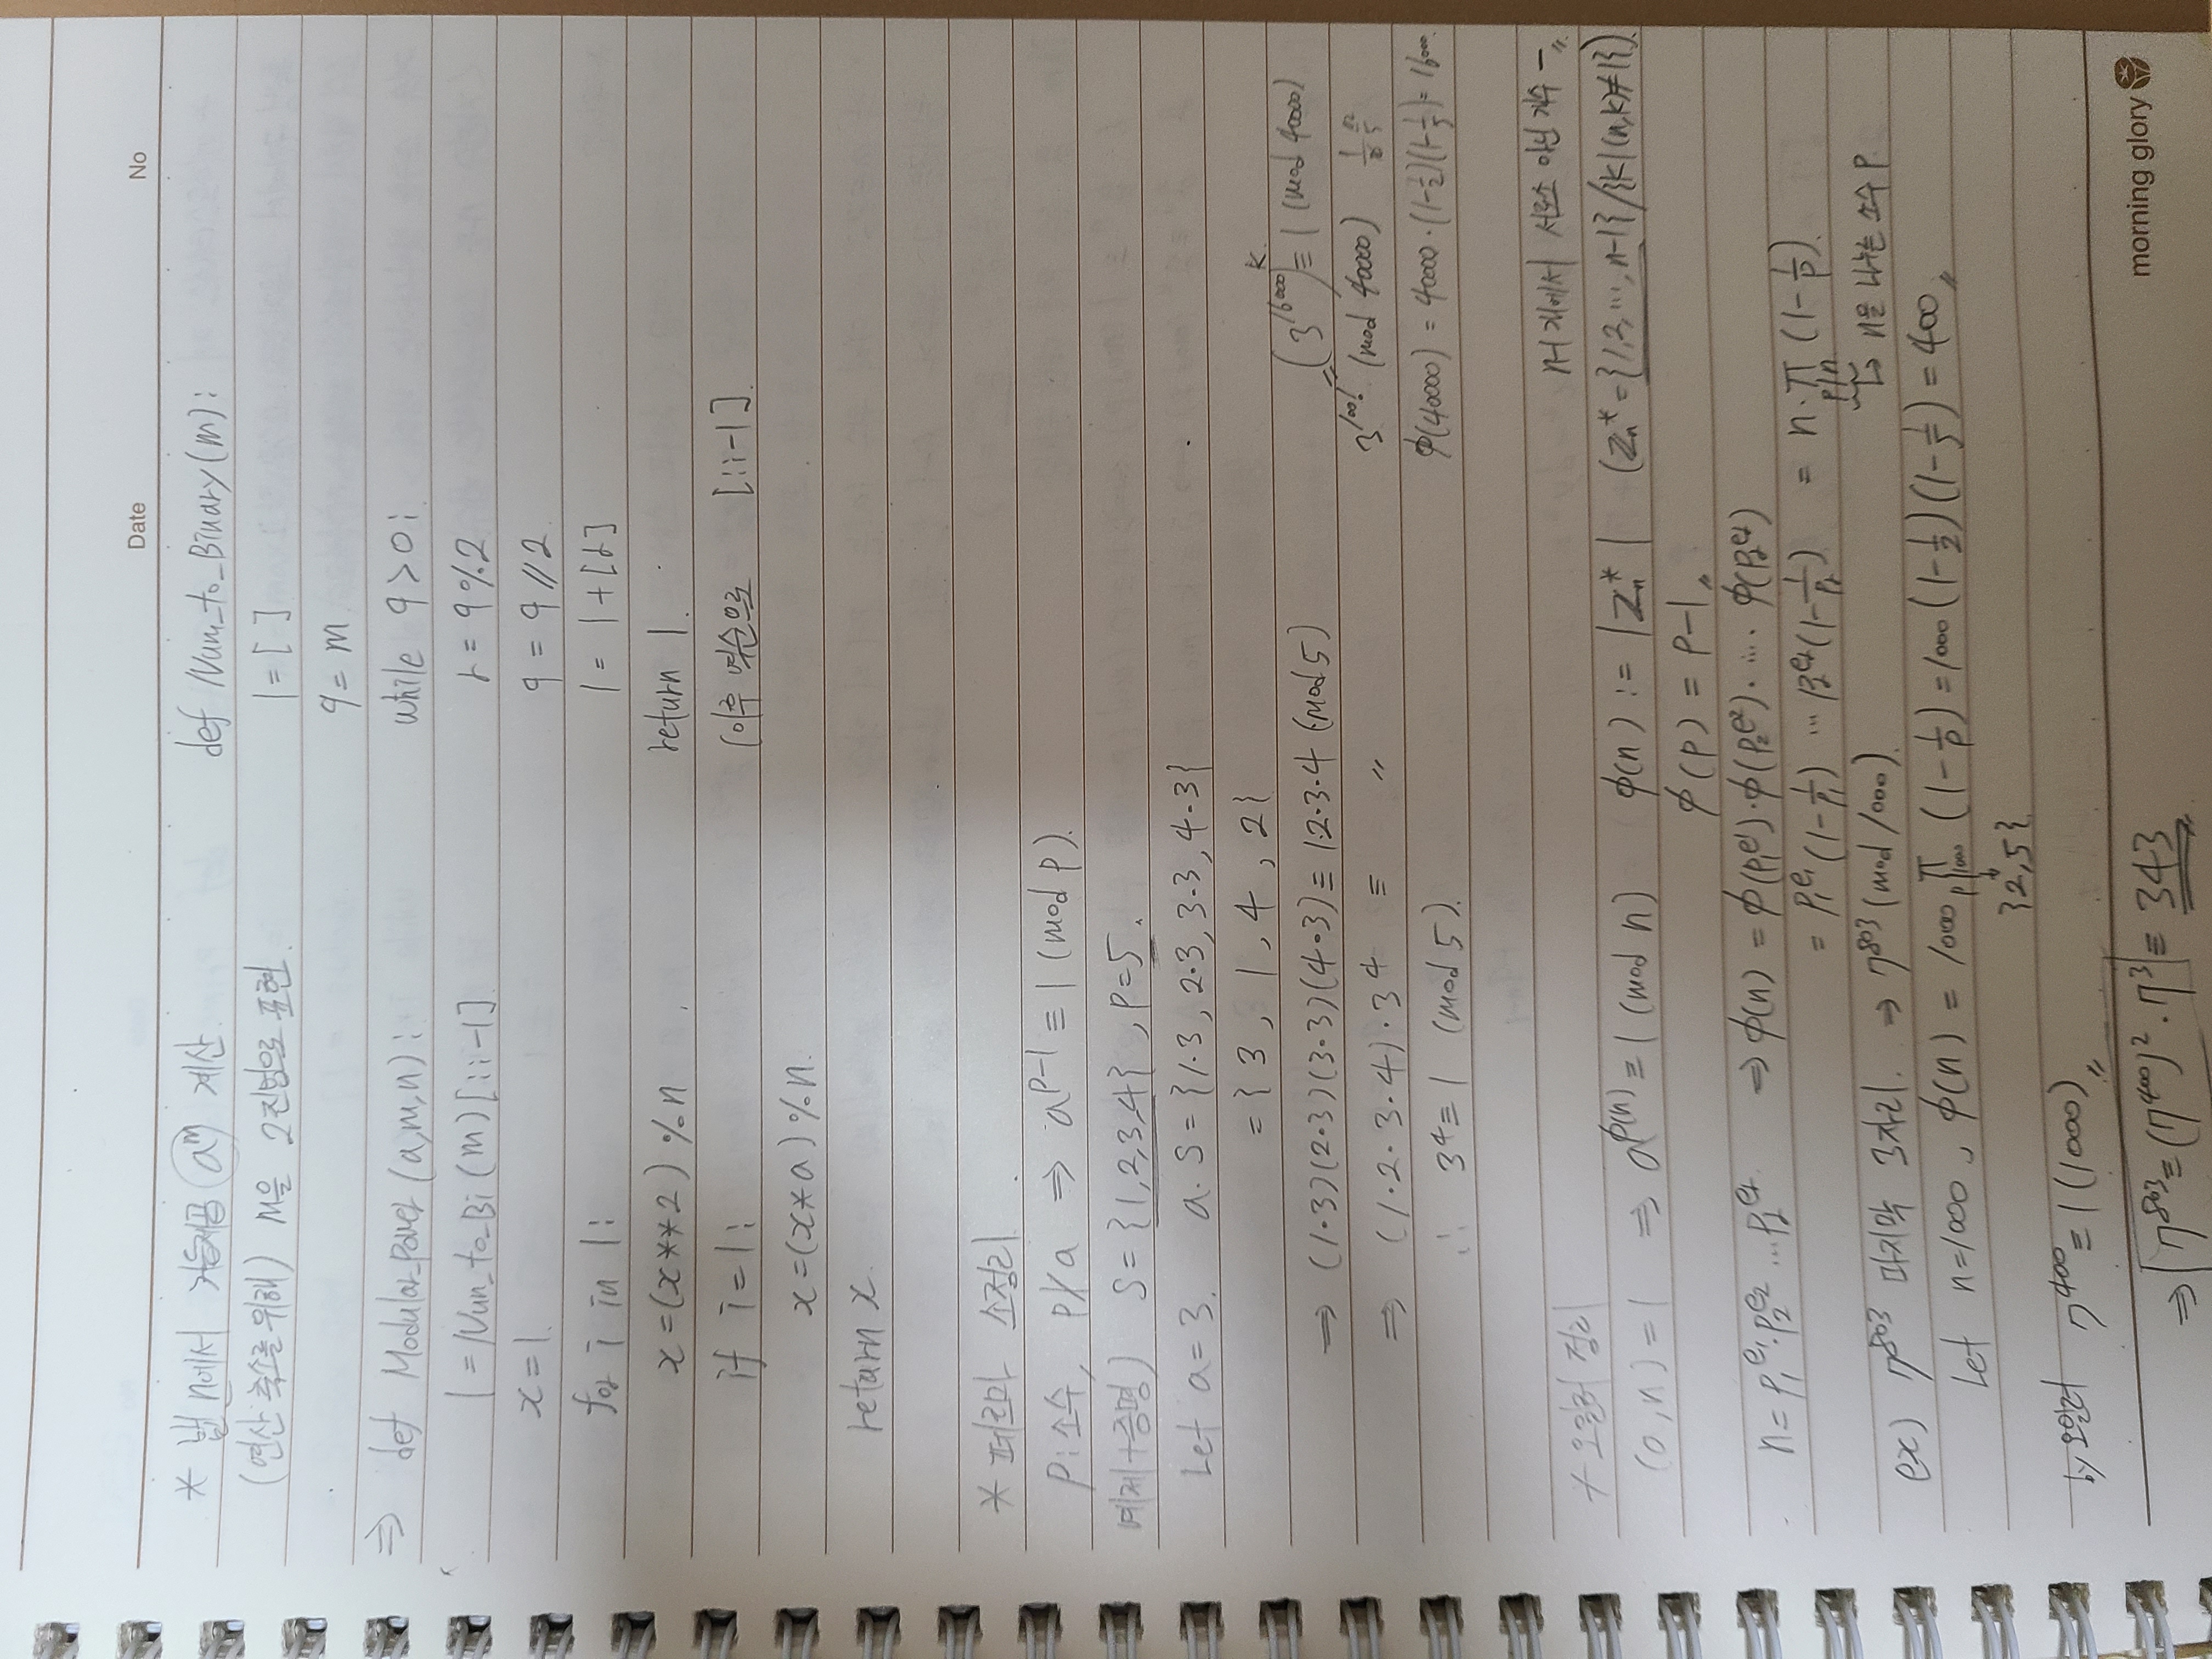 Date No
* 법 n에서 거듭제곱 a^m 계산.
(연산 축소를 위해) m을 2진법으로 표현.
⇒ def Modular_Power (a,m,n):
l = Num_to_Bi (m) [::-1]
x=1.
for i in l:
x=(x**2) % n
if i=1:
x=(x*a) % n.
return x.
def Num_to_Binary(m):
l = [ ]
q = m
while q > 0:
r = q%2
q = q//2
l = l+[r]
return l.
(이후 역순으로 [::-1].
* 페르마 소정리.
p:소수, p∤a ⇒ a^{p-1} ≡ 1 (mod p).
예제+증명) S={1,2,3,4}, p=5.
Let a=3. a·S={1·3, 2·3, 3·3, 4·3}
={3, 1, 4, 2}
⇒ (1·3)(2·3)(3·3)(4·3) ≡ 1·2·3·4 (mod 5)
⇒ (1·2·3·4)·3^4 ≡ 〃
∴ 3^4 ≡ 1 (mod 5).
(3^{16000})^k ≡ 1 (mod 40000)
(mod 40000)
φ(40000) = 40000·(1-1/2)(1-1/5) = 16000.
* 오일러 정리
n-1개에서 서로소 아닌 개수 -〃
(a,n)=1 ⇒ a^{φ(n)} ≡ 1 (mod n) φ(n) := |Z_n^*| (Z_n^* = {1,2,…,n-1}/{k|(n,k)≠1})
φ(p) = p-1〃
n=p_1^{e_1}·p_2^{e_2} … p_r^{e_r} ⇒ φ(n) = φ(p_1^{e_1})·φ(p_2^{e_2})· … φ(p_r^{e_r})
= p_1^{e_1}(1-1/p_1) … p_r^{e_r}(1-1/p_r) = n·∏_{p|n}(1-1/p).
↳ n을 나누는 소수 p.
ex) 7^{803} 마지막 3자리. ⇒ 7^{803} (mod 1000).
Let n=1000, φ(n) = 1000 ∏_{p|1000} (1-1/p) = 1000(1-1/2)(1-1/5) = 400〃
{2,5}.
by 오일러 7^{400} ≡ 1 (1000)〃
⇒ 7^{803} ≡ (7^{400})^2·7^3 ≡ 343〃
morning glory